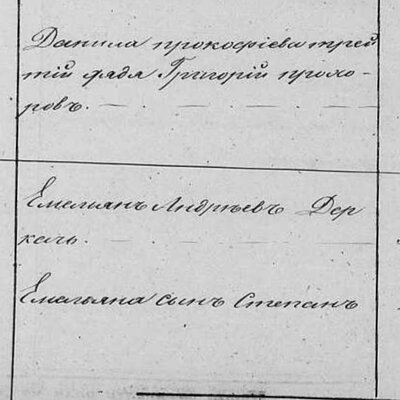 Данила прокофіева трей
тій дядя Григорій прохо-
ровъ.
Емелианъ Андрѣевъ Дер
качь.
Емельяна сынъ Степанъ